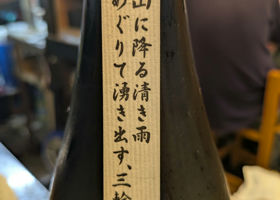 山に降る清き雨
めぐりて湧き出す、三輪